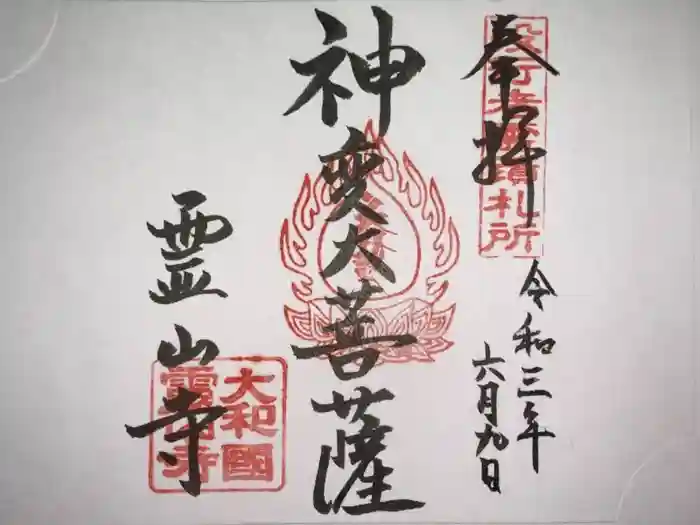 奉拝
役行者霊蹟札所
令和三年
六月九日
神変大菩薩
霊山寺
大和國
霊山寺